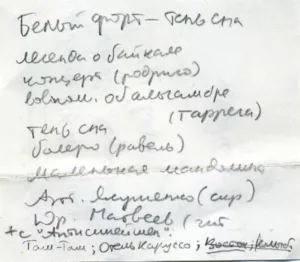 Белый форт – тень сна
легенда о байкале
концерт (родриго)
воспом. об альгамбре
(Таррега)
тень сна
болеро (равель)
маленькая мандолина
Арт. Якушенко (сир)
Юр. Матвеев (гит
+ с "Антисимейшен":
Там-Там; Отель Каруссо;